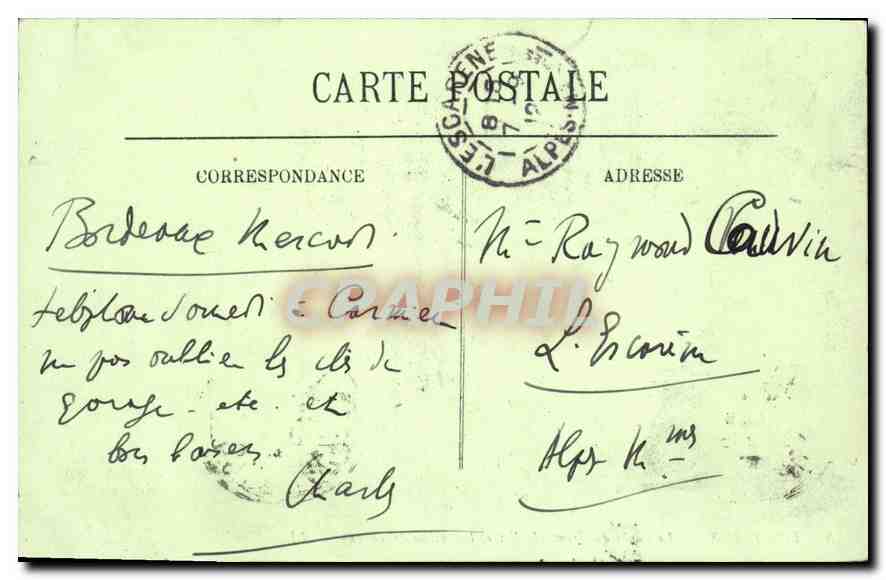 CARTE POSTALE
L'ESCARENE
8 15
7
ALPES-M
CORRESPONDANCE
ADRESSE
Bordeaux Mercredi.
téléphone samedi à Carmen
ne pas oublier les clés du
garage - etc. et
bons baisers.
Charles
Mr Raymond Cauvin
L'Escarène
Alpes Mmes
CPAPHIL